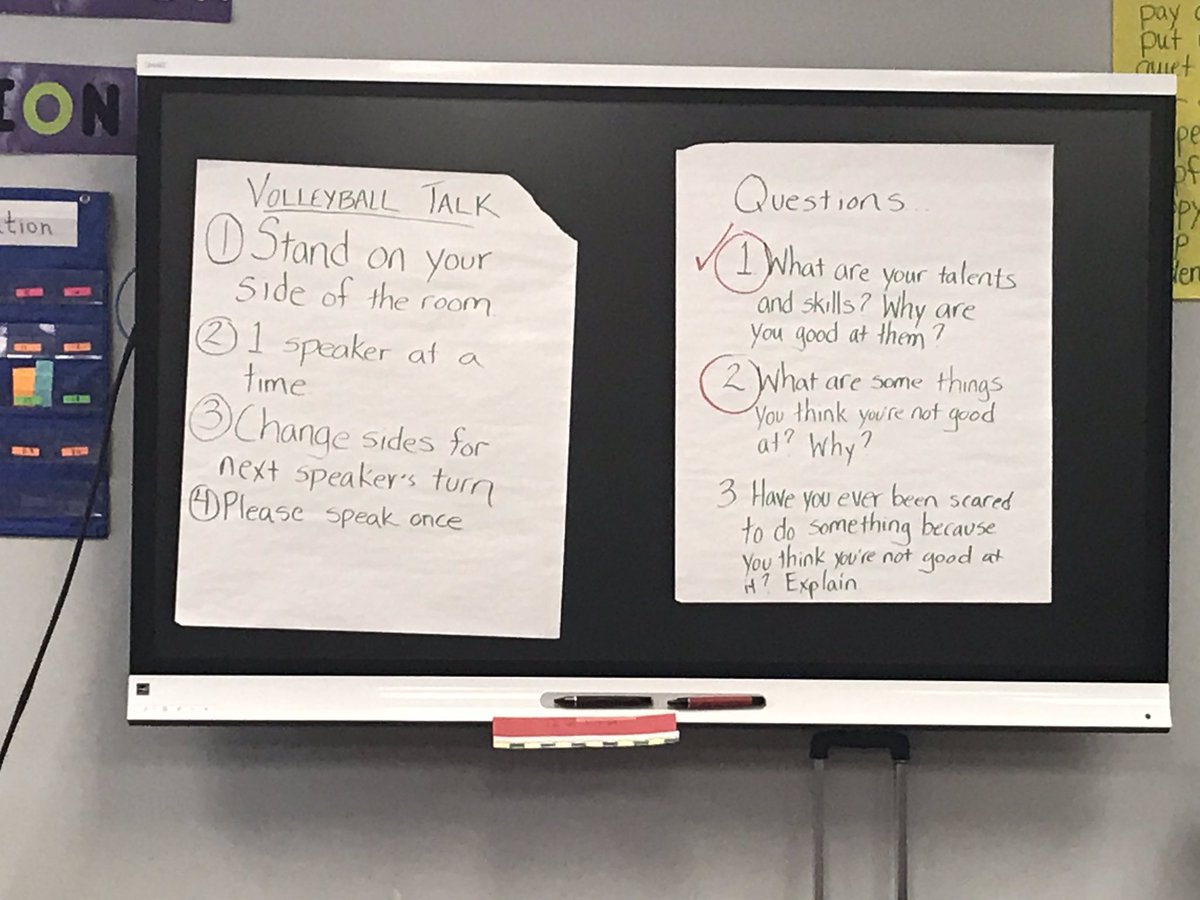 ION
tion
VOLLEYBALL TALK
① Stand on your
side of the room
② 1 speaker at a
time
③ Change sides for
next speaker's turn
④ Please speak once
Questions...
✓ ① What are your talents
and skills? Why are
you good at them?
② What are some things
you think you're not good
at? Why?
3 Have you ever been scared
to do something because
you think you're not good at
it? Explain
pay
put
quiet